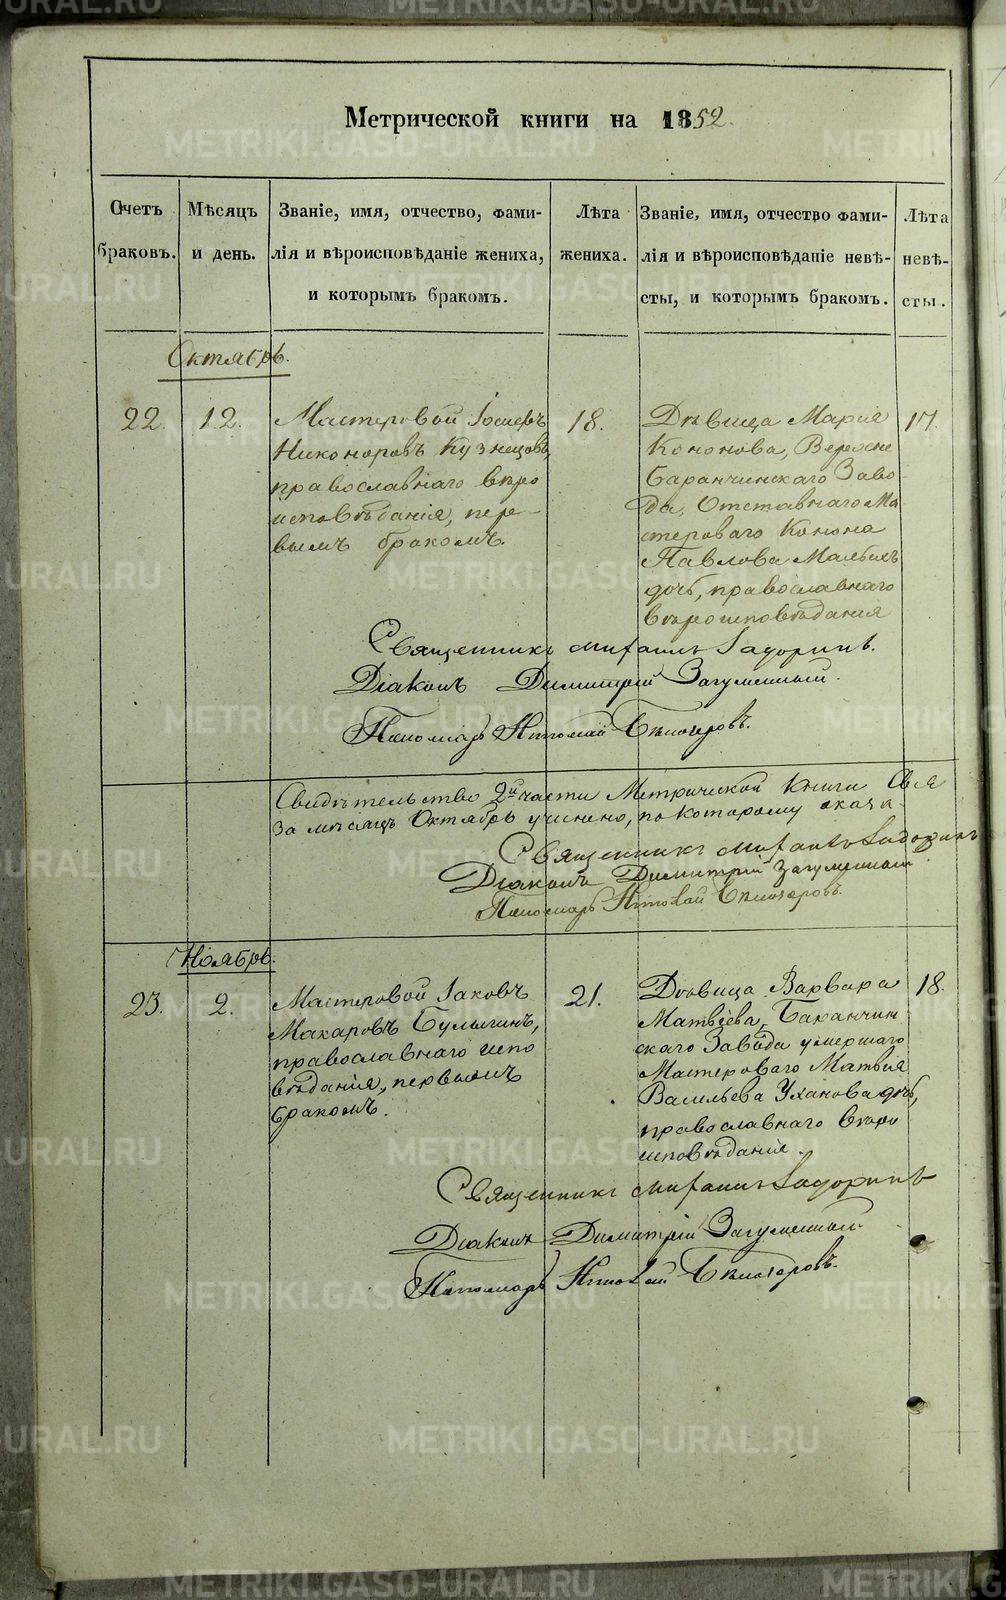 Метрической книги на 1852.
Счетъ браковъ.
Мѣсяцъ и день.
Званіе, имя, отчество, фами-
лія и вѣроисповѣданіе жениха,
и которымъ бракомъ.
Лѣта жениха.
Званіе, имя, отчество фами-
лія и вѣроисповѣданіе невѣ-
сты, и которымъ бракомъ.
Лѣта невѣ-
сты.
Октябрь.
22.
12.
Мастеровой Іосифъ
Никоноровъ Кузнецовъ,
православнаго вѣро
исповѣданія, пер-
вымъ бракомъ.
18.
Дѣвица Марія
Кононова,
Баранчинскаго Заво
да, Отставнаго Ма
стероваго Конона
Павлова
дочь, православнаго
вѣроисповѣданія
17.
Священникъ Михаилъ Задоринъ.
Діаконъ Димитрій Загуменный.
Пономарь
Свидѣтельство 2й части Метрической Книги
За мѣсяцъ Октябрь учинено, по которому оказа-
Священникъ Михаилъ Задоринъ
Діаконъ Димитрій Загуменный
Пономарь
Ноябрь.
23.
2.
Мастеровой Іаковъ
Макаровъ Булыгинъ,
православнаго испо
вѣданія, первымъ
бракомъ.
21.
Дѣвица Варвара
Матвѣева, Баранчин
скаго Завода умершаго
Мастероваго Матвѣя
Васильева Уханова дочь,
православнаго вѣро
исповѣданія.
18.
Священникъ Михаилъ Задоринъ
Діаконъ Димитрій Загуменный.
Пономарь
METRIKI.GASO-URAL.RU